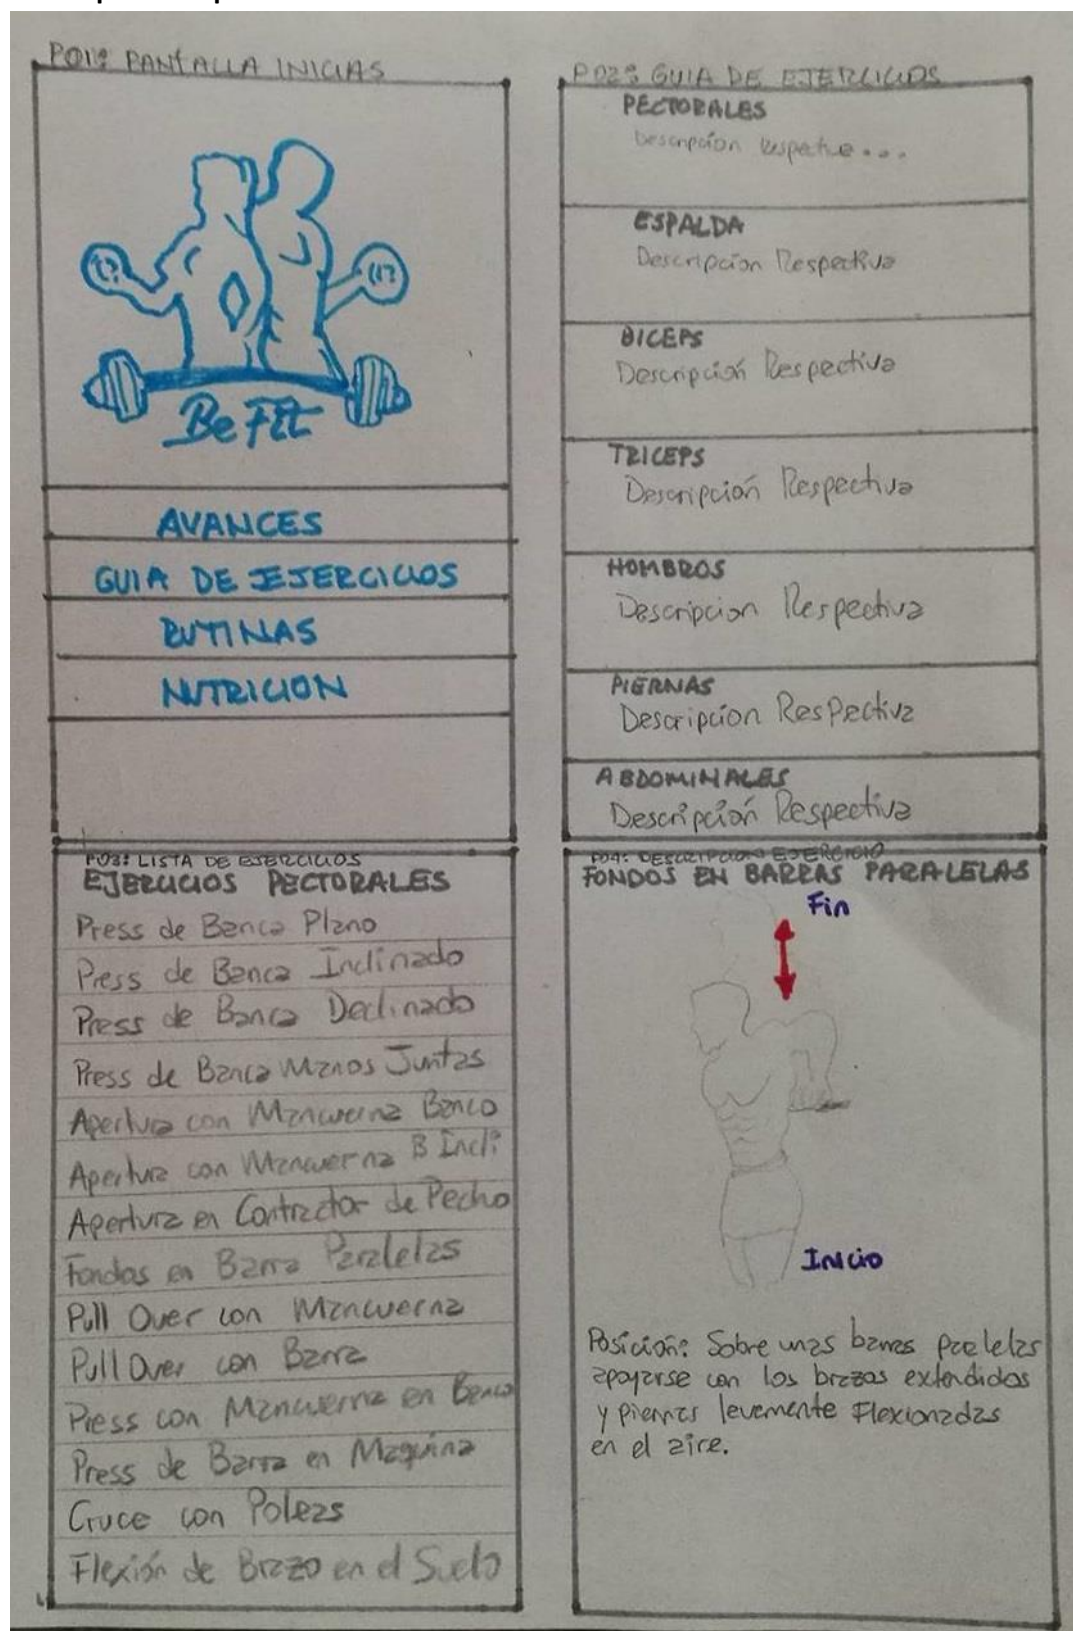 P01: PANTALLA INICIAS
Be FIt
AVANCES
GUIA DE EJERCICIOS
RUTINAS
NUTRICION
P02: GUIA DE EJERCICIOS
PECTORALES
Descripción Respectiva...
ESPALDA
Descripcion Respectiva
BICEPS
Descripción Respectiva
TRICEPS
Descripción Respectiva
HOMBROS
Descripcion Respectiva
PIERNAS
Descripcion Respectiva
ABDOMINALES
Descripción Respectiva
P03: LISTA DE EJERCICIOS
EJERCICIOS PECTORALES
Press de Banca Plano
Press de Banca Inclinado
Press de Banca Declinado
Press de Banca Manos Juntas
Apertura con Mancuerna Banco
Apertura con Mancuerna B Incli
Apertura en Contractor de Pecho
Fondos en Barra Paralelas
Pull Over con Mancuerna
Pull Over con Barra
Press con Mancuerna en Banco
Press de Barra en Maquina
Cruce con Poleas
Flexión de Brazo en el Suelo
P04: DESCRIPCION EJERCICIO
FONDOS EN BARRAS PARALELAS
Fin
Inicio
Posición: Sobre unas barras paralelas
apoyarse con los brazos extendidos
y piernas levemente Flexionadas
en el aire.